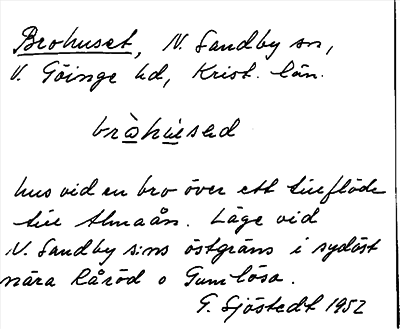 Brohuset, N. Sandby sn,
V. Göinge hd, Krist. län.
bròhúsed
hus vid en bro över ett tillflöde
till Almaån. Läge vid
N. Sandby s:ns östgräns i sydöst
nära Råröd o Gumlösa.
G. Sjöstedt 1952